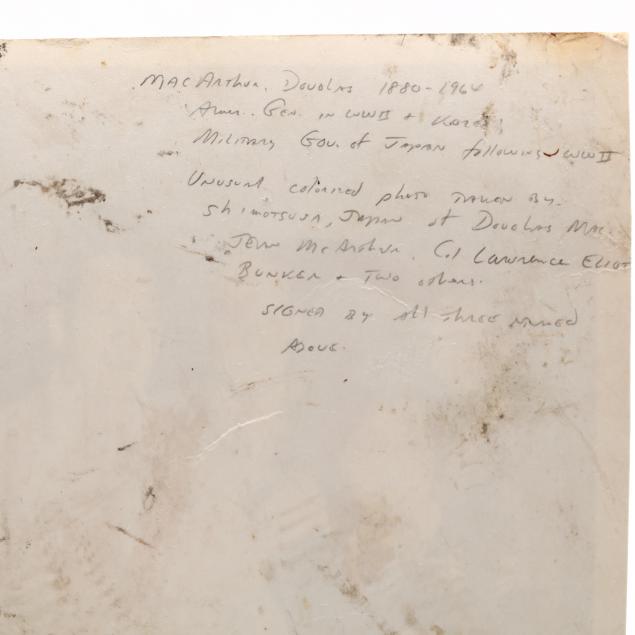 MacArthur, Douglas 1880-1964
Amer. Gen. in WWII + Korea;
Military Gov. of Japan following WWII
Unusual colorized photo taken by
Shimotsusa, Japan of Douglas Mac.
Jean McArthur, Col Lawrence Eliot
Bunker + two others.
Signed by all three named
Above.